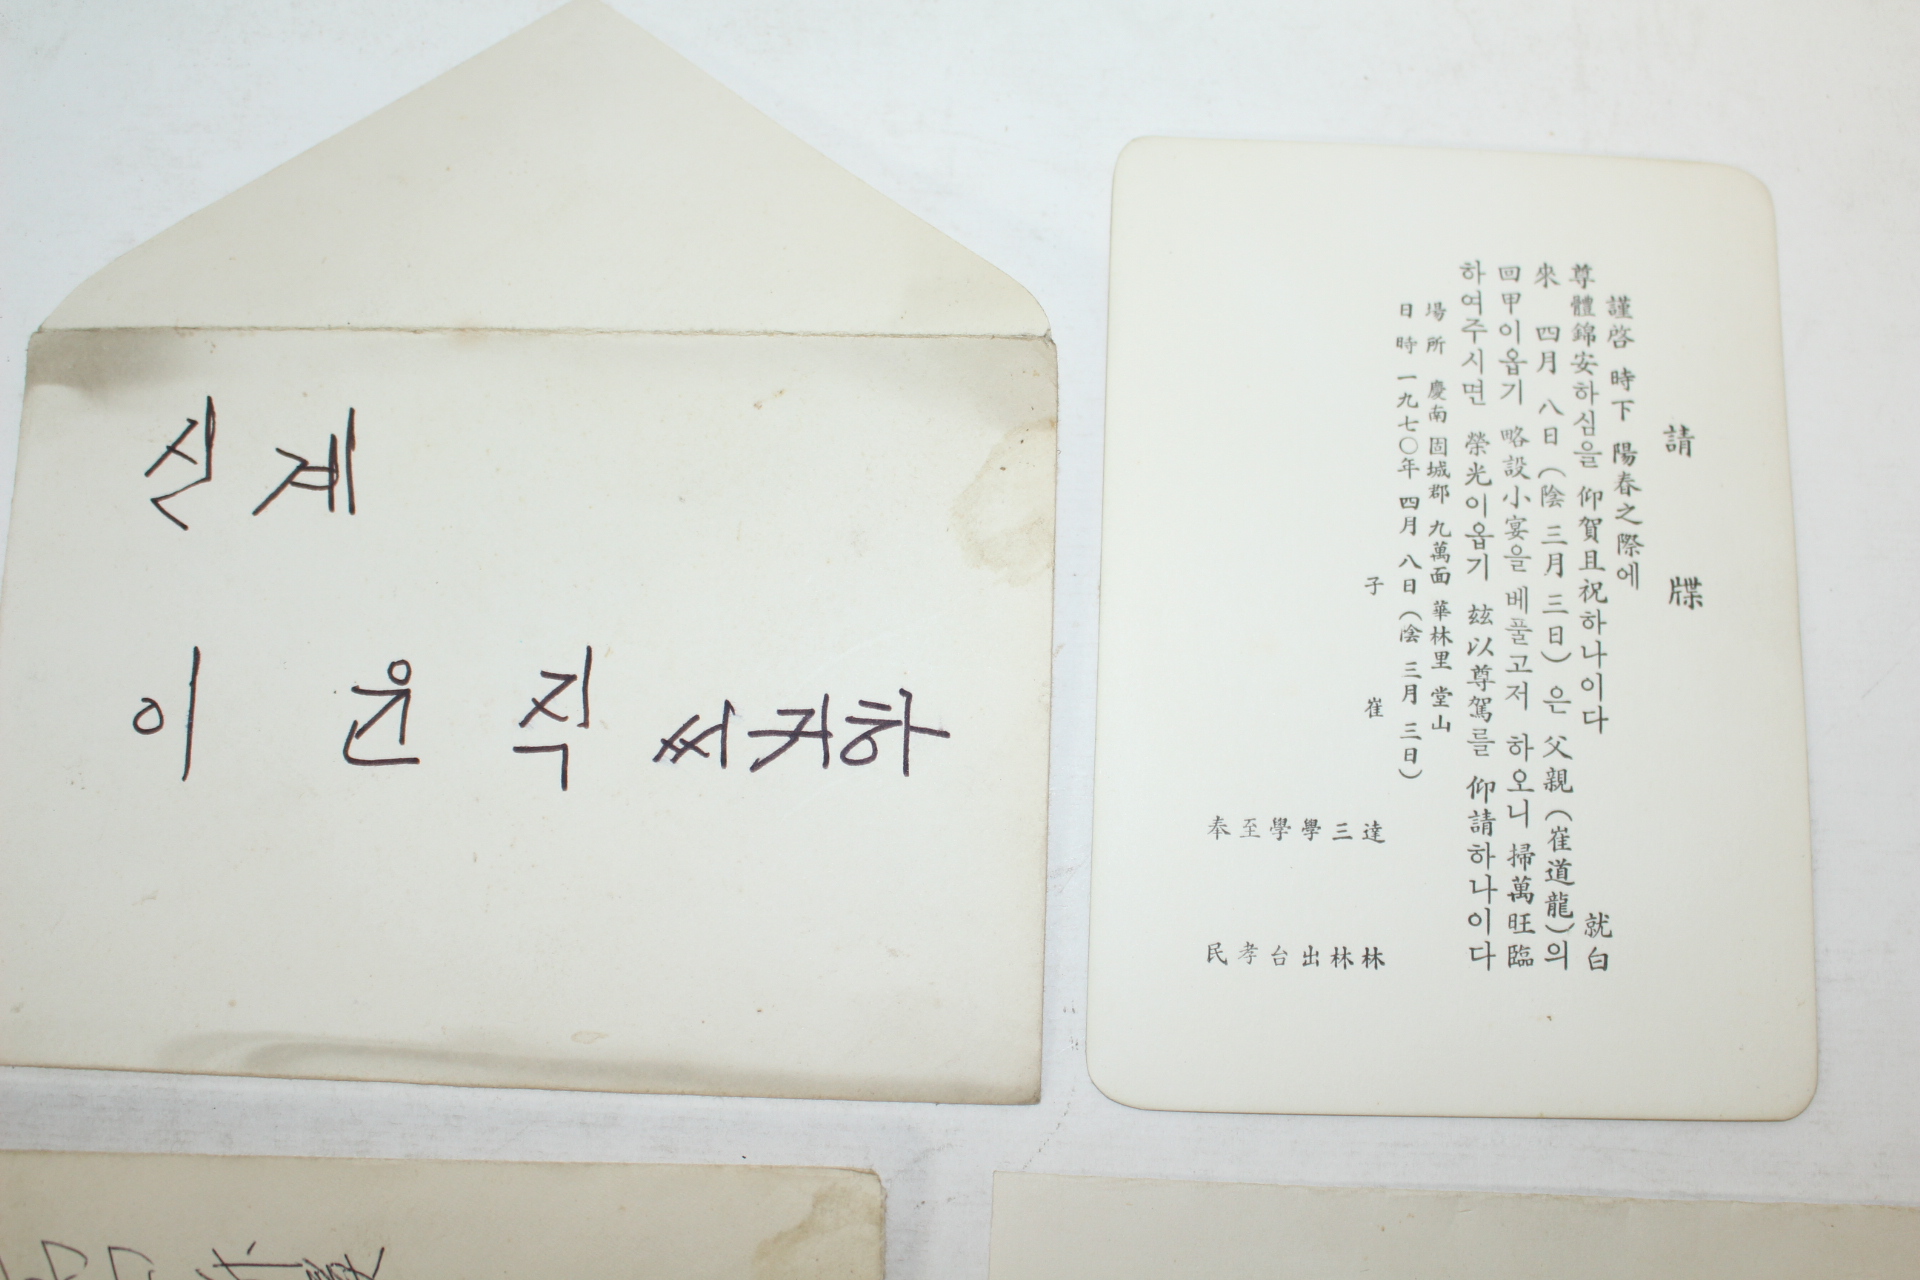 신계
이윤직 씨 귀하
請牒
謹啓 時下 陽春之際에
尊體錦安하심을 仰賀且祝하나이다 就白
來 四月 八日(陰 三月 三日)은 父親(崔道龍)의
回甲이옵기 略設小宴을 베풀고저 하오니 掃萬旺臨
하여주시면 榮光이옵기 玆以尊駕를 仰請하나이다
場所 慶南 固城郡 九萬面 華林里 堂山
日時 一九七〇年 四月 八日(陰 三月 三日)
子 崔 達林
三林
學出
學台
至孝
奉民